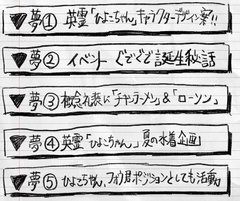 ▼夢① 英霊「ひよこちゃん」キャラクターデザイン案!!
▼夢② イベント ぐだぐだ誕生秘話
▼夢③ 概念礼装に「チキンラーメン」&「ローソン」
▼夢④ 英霊「ひよこちゃん」夏の水着企画
▼夢⑤ ひよこちゃん、フォウ君ポジションとしても活動